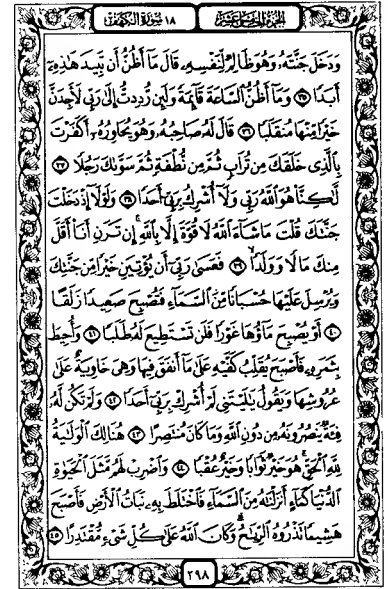 الجزء الخامس عشر ١٨ سورة الكهف
وَدَخَلَ جَنَّتَهُۥ وَهُوَ ظَالِمٌ لِّنَفْسِهِۦ قَالَ مَآ أَظُنُّ أَن تَبِيدَ هَٰذِهِۦٓ
أَبَدًا ٣٥ وَمَآ أَظُنُّ ٱلسَّاعَةَ قَآئِمَةً وَلَئِن رُّدِدتُّ إِلَىٰ رَبِّى لَأَجِدَنَّ
خَيْرًا مِّنْهَا مُنقَلَبًا ٣٦ قَالَ لَهُۥ صَاحِبُهُۥ وَهُوَ يُحَاوِرُهُۥٓ أَكَفَرْتَ
بِٱلَّذِى خَلَقَكَ مِن تُرَابٍ ثُمَّ مِن نُّطْفَةٍ ثُمَّ سَوَّىٰكَ رَجُلًا ٣٧
لَّٰكِنَّا۠ هُوَ ٱللَّهُ رَبِّى وَلَآ أُشْرِكُ بِرَبِّىٓ أَحَدًا ٣٨ وَلَوْلَآ إِذْ دَخَلْتَ
جَنَّتَكَ قُلْتَ مَا شَآءَ ٱللَّهُ لَا قُوَّةَ إِلَّا بِٱللَّهِ إِن تَرَنِ أَنَا۠ أَقَلَّ
مِنكَ مَالًا وَوَلَدًا ٣٩ فَعَسَىٰ رَبِّىٓ أَن يُؤْتِيَنِ خَيْرًا مِّن جَنَّتِكَ
وَيُرْسِلَ عَلَيْهَا حُسْبَانًا مِّنَ ٱلسَّمَآءِ فَتُصْبِحَ صَعِيدًا زَلَقًا
٤٠ أَوْ يُصْبِحَ مَآؤُهَا غَوْرًا فَلَن تَسْتَطِيعَ لَهُۥ طَلَبًا ٤١ وَأُحِيطَ
بِثَمَرِهِۦ فَأَصْبَحَ يُقَلِّبُ كَفَّيْهِ عَلَىٰ مَآ أَنفَقَ فِيهَا وَهِىَ خَاوِيَةٌ عَلَىٰ
عُرُوشِهَا وَيَقُولُ يَٰلَيْتَنِى لَمْ أُشْرِكْ بِرَبِّىٓ أَحَدًا ٤٢ وَلَمْ تَكُن لَّهُۥ
فِئَةٌ يَنصُرُونَهُۥ مِن دُونِ ٱللَّهِ وَمَا كَانَ مُنتَصِرًا ٤٣ هُنَالِكَ ٱلْوَلَٰيَةُ
لِلَّهِ ٱلْحَقِّ هُوَ خَيْرٌ ثَوَابًا وَخَيْرٌ عُقْبًا ٤٤ وَٱضْرِبْ لَهُم مَّثَلَ ٱلْحَيَوٰةِ
ٱلدُّنْيَا كَمَآءٍ أَنزَلْنَٰهُ مِنَ ٱلسَّمَآءِ فَٱخْتَلَطَ بِهِۦ نَبَاتُ ٱلْأَرْضِ فَأَصْبَحَ
هَشِيمًا تَذْرُوهُ ٱلرِّيَٰحُ وَكَانَ ٱللَّهُ عَلَىٰ كُلِّ شَىْءٍ مُّقْتَدِرًا ٤٥
٢٩٨